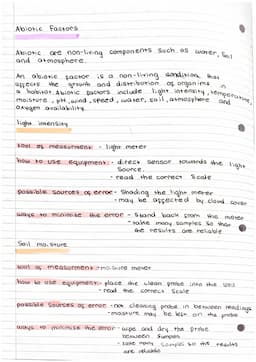 Abiotic Factors
Abiotic are non-living components such as water, soil
and atmosphere.
An abiotic factor is a non-living condition that
affects the growth and distribution of organisms in
a habitat. Abiotic factors include light intensity, temperature,
moisture, pH, wind speed, water, soil, atmosphere and
oxygen availability.
light intensity
tool of measurement - light meter
how to use equipment - direct sensor towards the light
source.
- read the correct scale
possible sources of error - shading the light meter
- may be affected by cloud cover
ways to minimise the error - stand back from the meter
- take many samples so that
the results are reliable
Soil moisture
tool of measurement - moisture meter
how to use equipment - place the clean probe into the soil
- read the correct scale
possible sources of error - not cleaning probe in between readings
- moisture may be left on the probe
ways to minimise the error - wipe and dry the probe
between samples
- take many samples so the results
are reliable